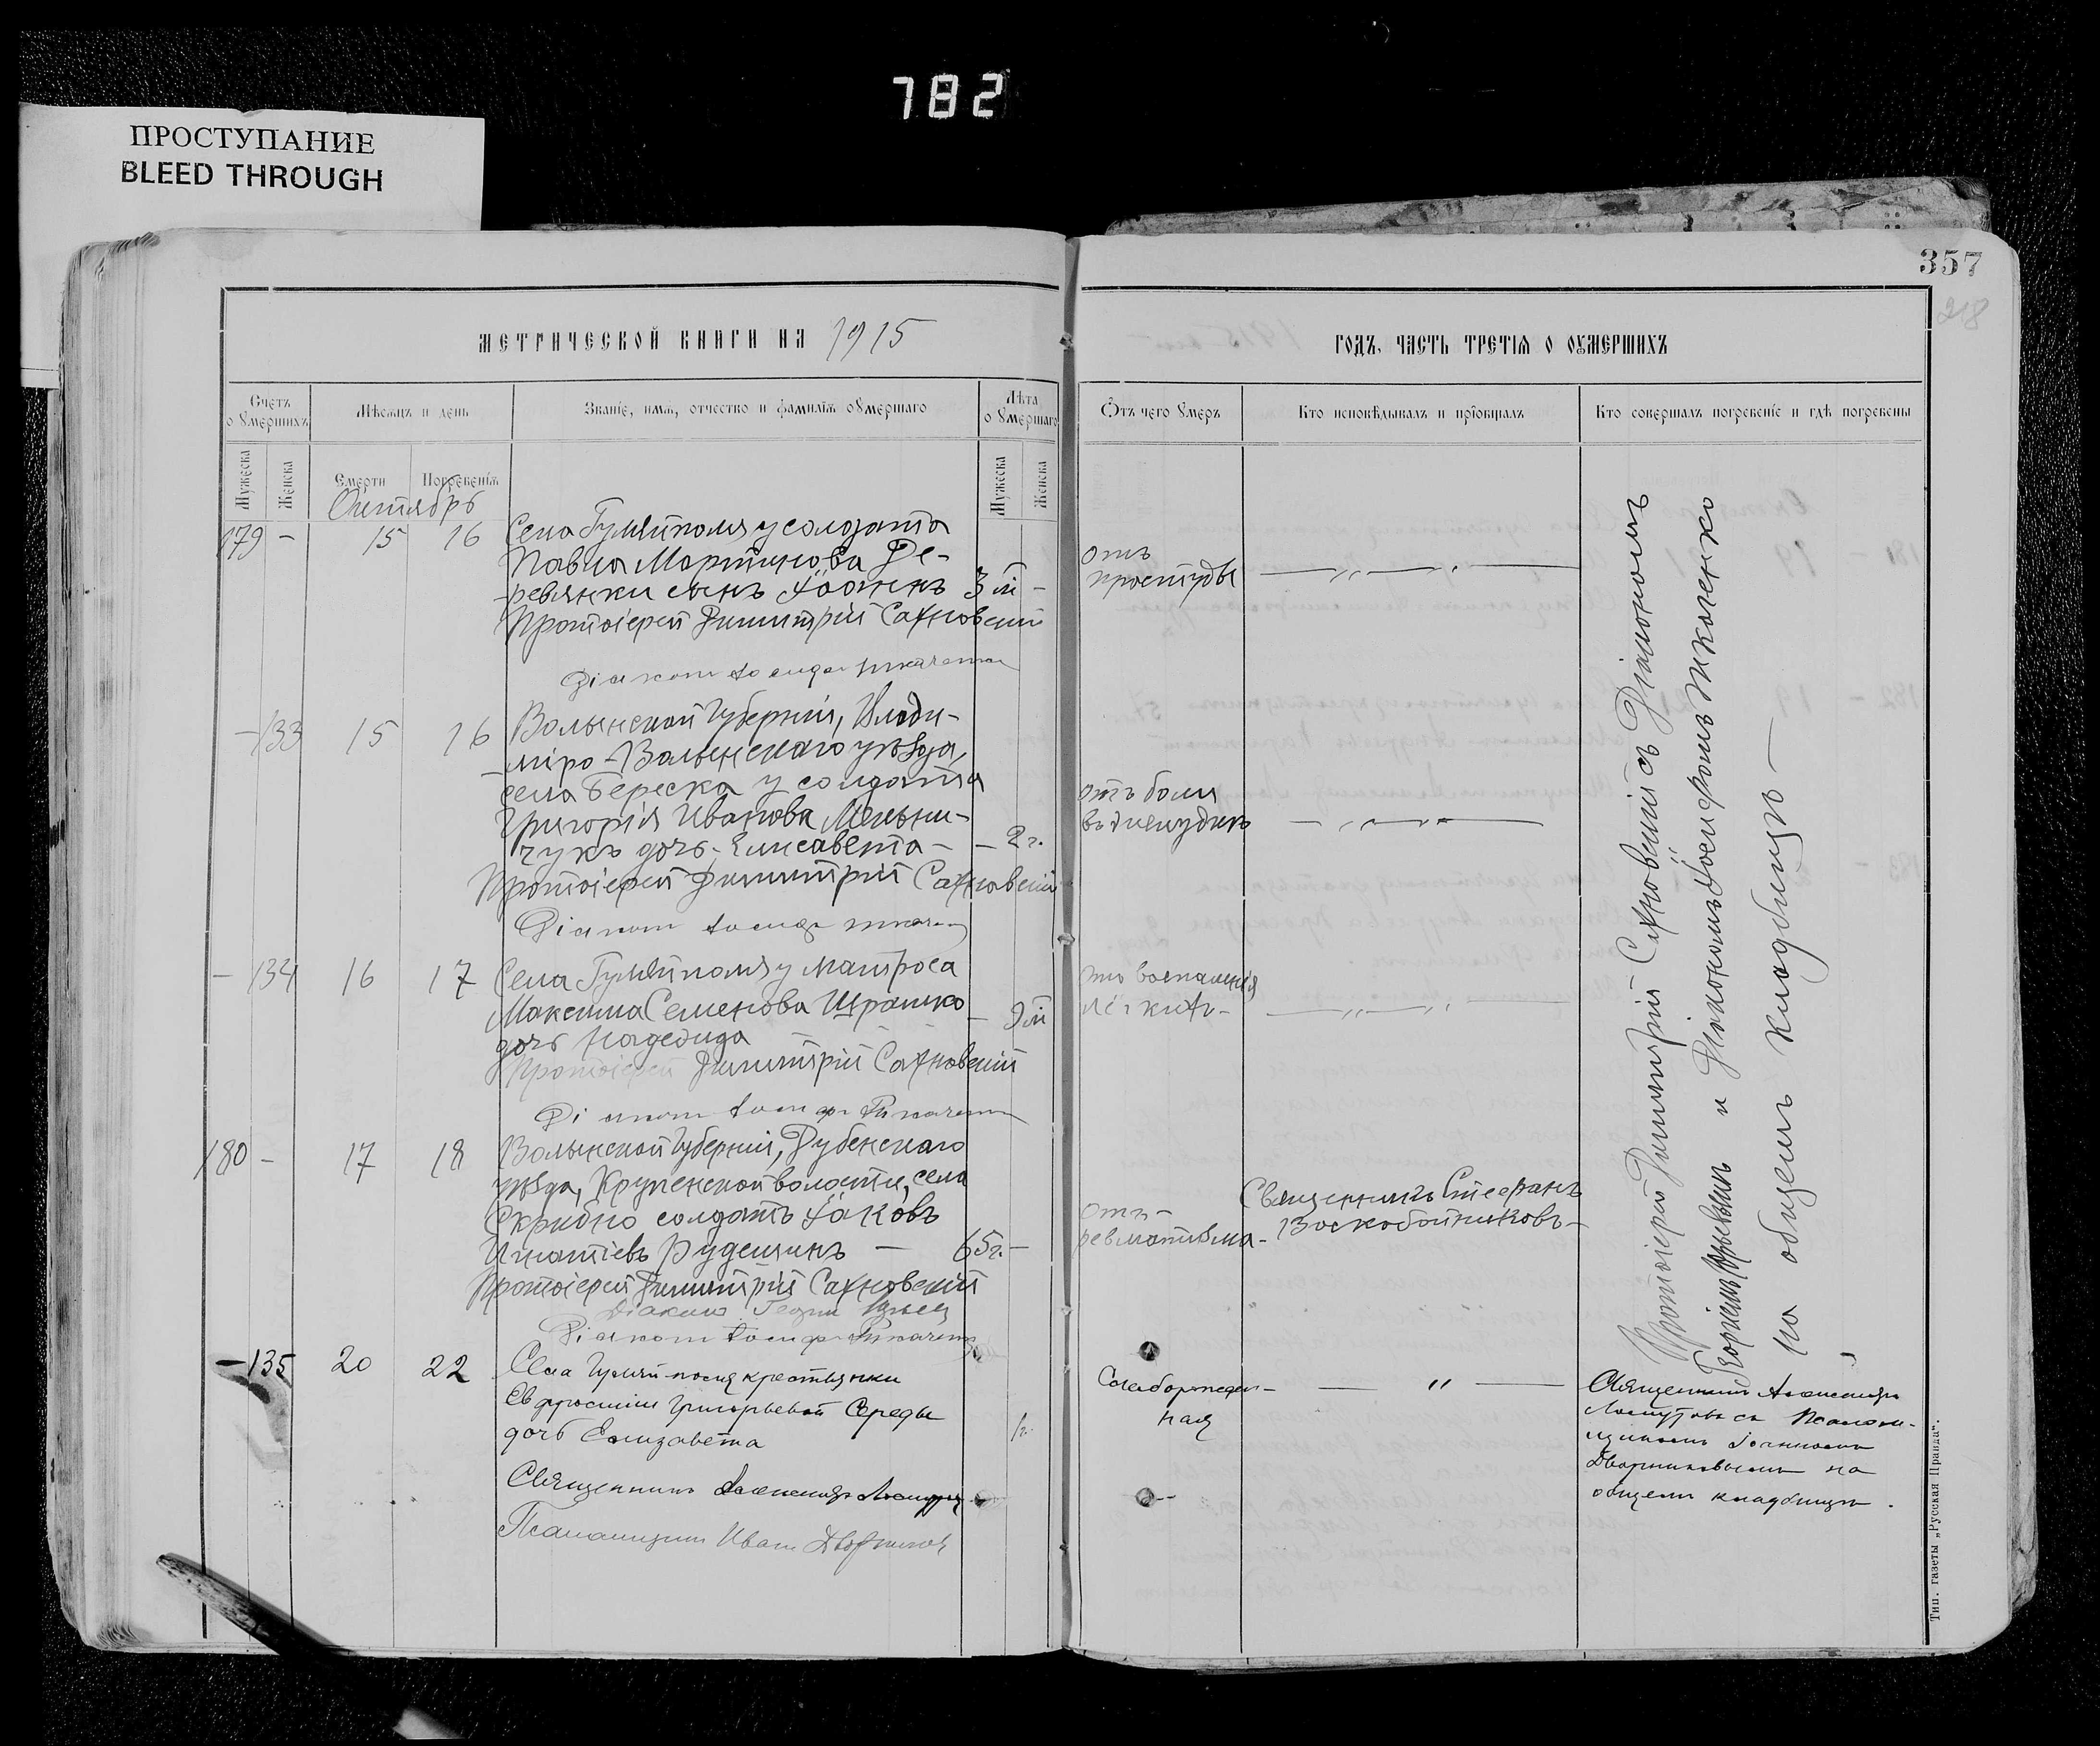 782
ПРОСТУПАНИЕ
BLEED THROUGH
357
218
МЕТРИЧЕСКОЙ КНИГИ НА 1915
ГОДЪ, ЧАСТЬ ТРЕТІЯ О ОУМЕРШИХЪ
Счетъ о ѹмершихъ
Мѣсяцъ и день
Званіе, имя, отчество и фамилія ѹмершаго
Лѣта ѹмершаго
Отъ чего ѹмеръ
Кто исповѣдывалъ и пріобщалъ
Кто совершалъ погребеніе и гдѣ погребены
Мужеска
Женска
Смерти
Погребенія
Мужеска
Женска
Октябрь
179 - 15 16 Села Гуляйполя у солдата
Павла Мартинова Де-
ревянки сынъ Іоаннъ 3 м -
Протоіерей Димитрій Сахновскій
Діаконъ Іосифъ Ткаченко
отъ
простуды
- 133 15 16 Волынской губерніи, Влади-
міро-Волынскаго уѣзда,
села Береска у солдата
Григорія Иванова Мельни-
чукъ дочь Елисавета - - 2 г.
Протоіерей Димитрій Сахновскій
Діаконъ Іосифъ
отъ боли
въ желудкѣ
- 134 16 17 Села Гуляйполя у матроса
Максима Семенова Шрамко
дочь Надежда - 9 м
Протоіерей Димитрій Сахновскій
Діаконъ Іосифъ Ткаченко
отъ воспаленія
лёгкихъ-
180 - 17 18 Волынской губерніи, Дубенскаго
уѣзда, Крупецкой волости, села
солдатъ Іаковъ
Игнатіевъ - 65 г. -
Протоіерей Димитрій Сахновскій
Діаконъ
Діаконъ Іосифъ Ткаченко
отъ-
ревматизма-
Священникъ Стефанъ
Воскобойниковъ-
Протоіерей Димитрій Сахновскій съ Діакономъ
и Діакономъ Іосифомъ Ткаченко
на общемъ кладбищѣ-
- 135 20 22 Села Гуляй-поля крестьянки
Евфросиніи Григорьевой Середы
дочь Елизавета 1 г.
Священникъ Александръ
Псаломщикъ Иванъ Дворниковъ
Слаборожден-
ная
Священникъ Александръ
съ Псалом-
щикомъ Іоанномъ
Дворниковымъ на
общемъ кладбищѣ.
Тип. газеты „Русская Правда“.